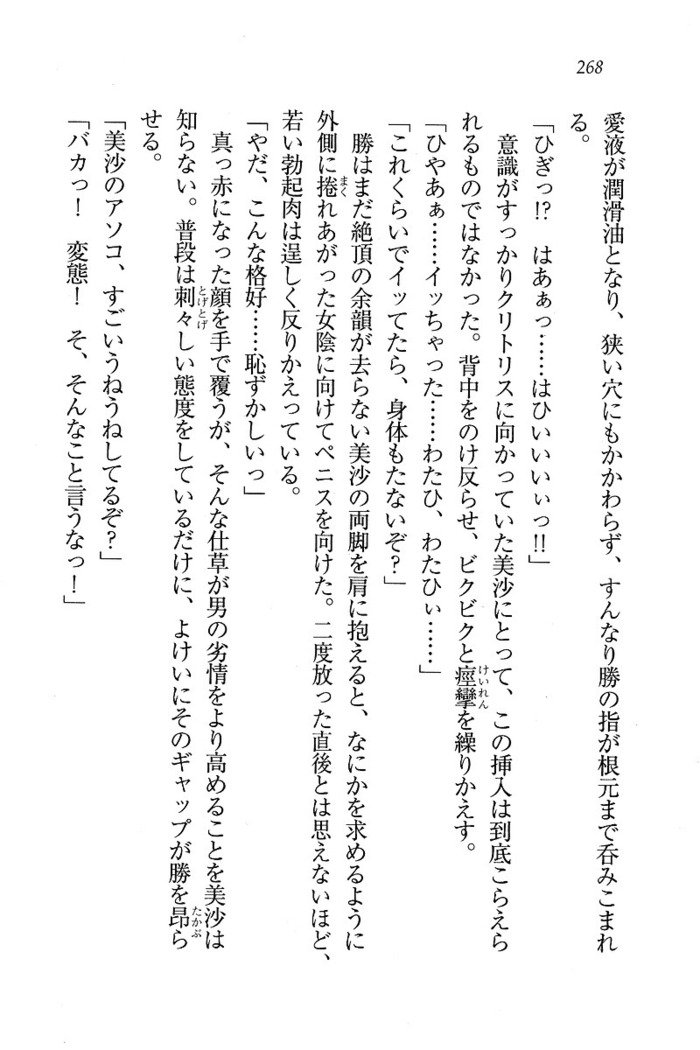 268
愛液が潤滑油となり、狭い穴にもかかわらず、すんなり勝の指が根元まで呑みこまれ
る。
「ひぎっ!?　はあぁっ……はひぃいいぃっ!!」
意識がすっかりクリトリスに向かっていた美沙にとって、この挿入は到底こらえら
れるものではなかった。背中をのけ反らせ、ビクビクと痙攣を繰りかえす。
けいれん
「ひやあぁ……イッちゃった……わたひ、わたひぃ……」
「これくらいでイッてたら、身体もたないぞ?」
勝はまだ絶頂の余韻が去らない美沙の両脚を肩に抱えると、なにかを求めるように
外側に捲れあがった女陰に向けてペニスを向けた。二度放った直後とは思えないほど、
まく
若い勃起肉は逞しく反りかえっている。
「やだ、こんな格好……恥ずかしいっ」
真っ赤になった顔を手で覆うが、そんな仕草が男の劣情をより高めることを美沙は
知らない。普段は刺々しい態度をしているだけに、よけいにそのギャップが勝を昂ら
とげとげ
たかぶ
せる。
「美沙のアソコ、すごいうねうねしてるぞ?」
「バカっ!　変態!　そ、そんなこと言うなっ!」